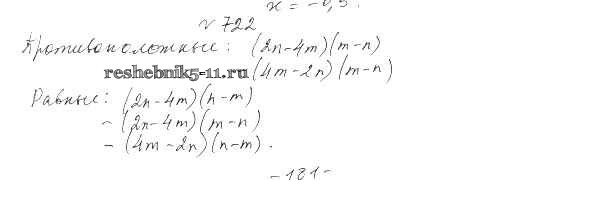 x = -0,5.
№ 722
Противоположные: (2n-4m)(m-n)
reshebnik5-11.ru (4m-2n)(m-n)
Равные: (2n-4m)(n-m)
- (2n-4m)(m-n)
- (4m-2n)(n-m).
-181-